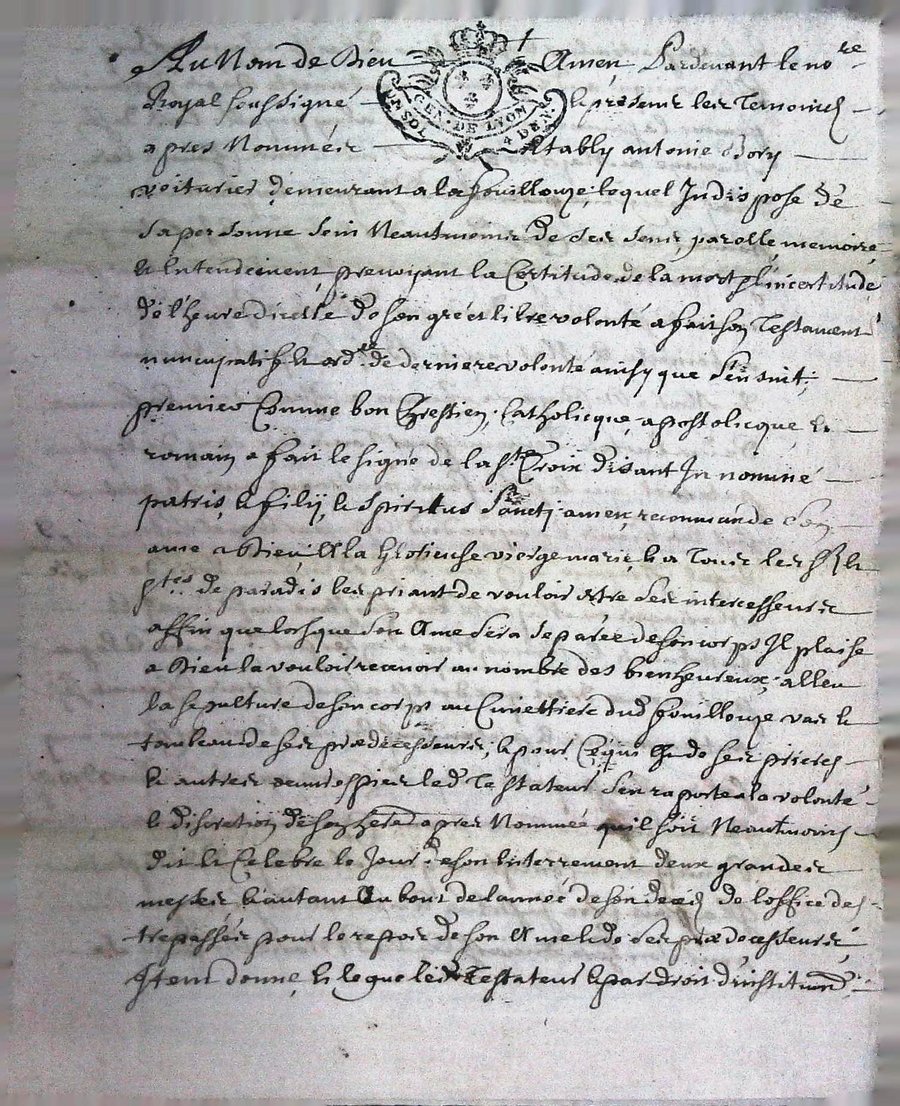 Au Nom de Dieu Amen Pardevant le no.re
UN SOL GEN. DE LYON 4 DEN.
Royal soussigné & presents les Temoins
apres Nommés estably antoine Bory
voiturier demeurant a la fouillouze, lequel Indispose de
sa personne sein Neautmoins de ses sens, parolle, memoire,
& Entendement, prevoyant la Certitude de la mort & l'incertitude
de l'heure d'icelle de son gré et libre volonté a fait son Testament
nuncupatif & ord.re de derniere volonté ainsy que s'en suit;
premier Comme bon Chrestien, Catholicque, apostolicque, &
romain a fait le signe de la S.te Croix disant In nominé
patris, & filij, & spiritus Sancti amen, recommande son
ame a Dieu, a la glorieuse vierge marie, & a Tous les S.ts &
s.tes de paradis les priant de vouloir estre ses intercesseurs
affin que lorsque son Ame sera separée de son corps Il plaise
a Dieu la vouloir recevoir au nombre des bienheureux;
la sepulture de son corps au Cimettiere dud. fouillouze vas &
tombeau de ses prædecesseurs; & pour Ce qui est de ses prieres
& autres led. Testateur s'en raporte a la volonté
& discretion de son apres Nommée qu'il soit Neautmoins
dit & Celebré le Jour de son Enterrement deux grandes
messes & autant Au bout de l'année de son deces de l'office des
trepassés pour le repos de son Ame & de ses prædecesseurs
Item donne, & legue led. Testateur & par droit d'institution